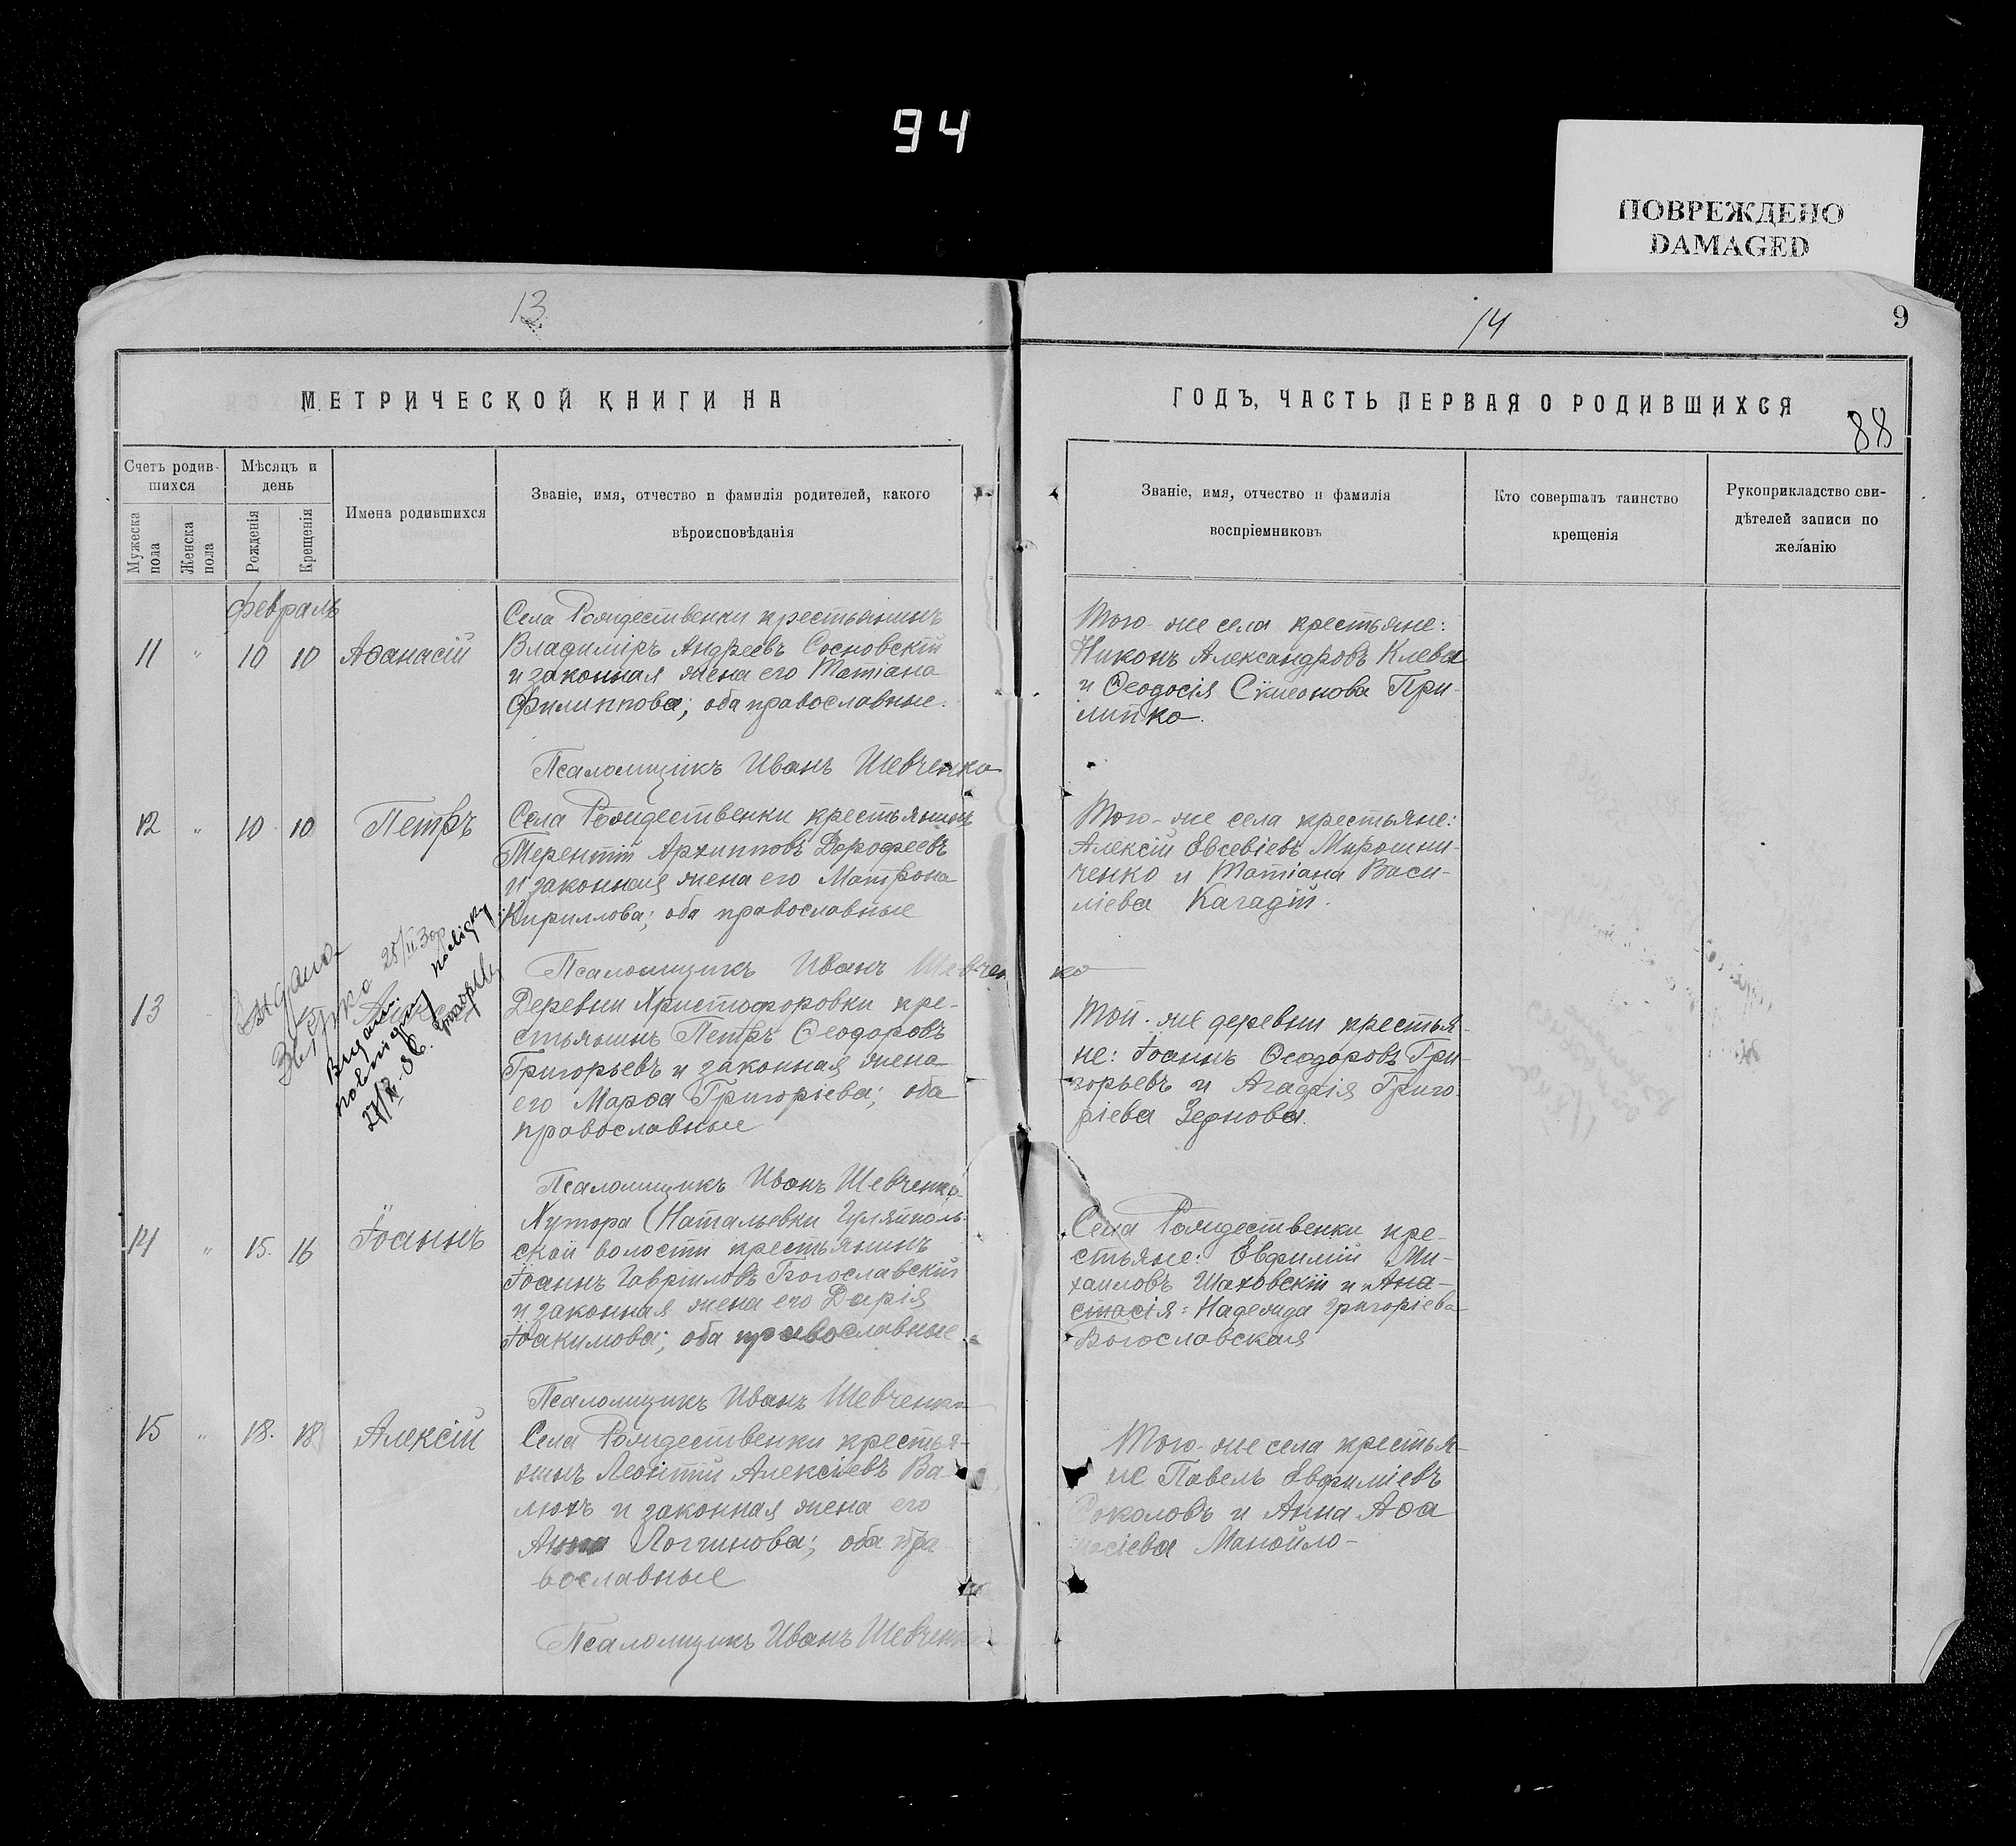 94
ПОВРЕЖДЕНО
DAMAGED
13
14
9
МЕТРИЧЕСКОЙ КНИГИ НА
ГОДЪ, ЧАСТЬ ПЕРВАЯ О РОДИВШИХСЯ
88
Счетъ родив-
шихся
Мужеска
пола
Женска
пола
Мѣсяцъ и
день
Рожденія
Крещенія
Имена родившихся
Званіе, имя, отчество и фамилія родителей, какого
вѣроисповѣданія
Званіе, имя, отчество и фамилія
воспріемниковъ
Кто совершалъ таинство
крещенія
Рукоприкладство сви-
дѣтелей записи по
желанію
февраль
11 " 10 10 Аѳанасій
Села Рождественки крестьянинъ
Владиміръ Андреевъ Сосновскій
и законная жена его Татіана
Филиппова; оба православные.
Псаломщикъ Иванъ Шевченко
Того-же села крестьяне:
Никонъ Александровъ Клева
и Ѳеодосія Сѵмеонова При-
липко.
12 " 10 10 Петръ
Села Рождественки крестьянинъ
Терентій Архипповъ Дорофеевъ
и законная жена его Матрона
Кириллова; оба православные
Псаломщикъ Иванъ Шевченко
Того-же села крестьяне:
Алексій Евсевіевъ Мирошни-
ченко и Татіана Васи-
ліева Карадій.
13
Выдана
25/II 30р
27/IV-36.
Деревни Христофоровки кре-
стьянинъ Петръ Ѳеодоровъ
Григорьевъ и законная жена
его Марѳа Григоріева; оба
православные
Псаломщикъ Иванъ Шевченко
Той-же деревни крестья-
не: Іоаннъ Ѳеодоровъ Гри-
горьевъ и Агафія Григо-
ріева Зернова.
14 " 15. 16 Іоаннъ
Хутора Натальевки Гуляйполь-
ской волости крестьянинъ
Іоаннъ Гавріиловъ Богославскій
и законная жена его Дарія
Іоакимова; оба православные
Псаломщикъ Иванъ Шевченко
Села Рождественки кре-
стьяне: Евфимій Ми-
хаиловъ Шаховскій и Ана-
стасія: Надежда Григоріева
Богославская
15 " 18. 18 Алексій
Села Рождественки крестья-
нинъ Леонтій Алексіевъ Ва-
люхъ и законная жена его
Анна Логгинова; оба пра-
вославные
Псаломщикъ Иванъ Шевченко
Того-же села крестья-
не Павелъ Евфиміевъ
Соколовъ и Анна Аѳа
насіева Манойло-